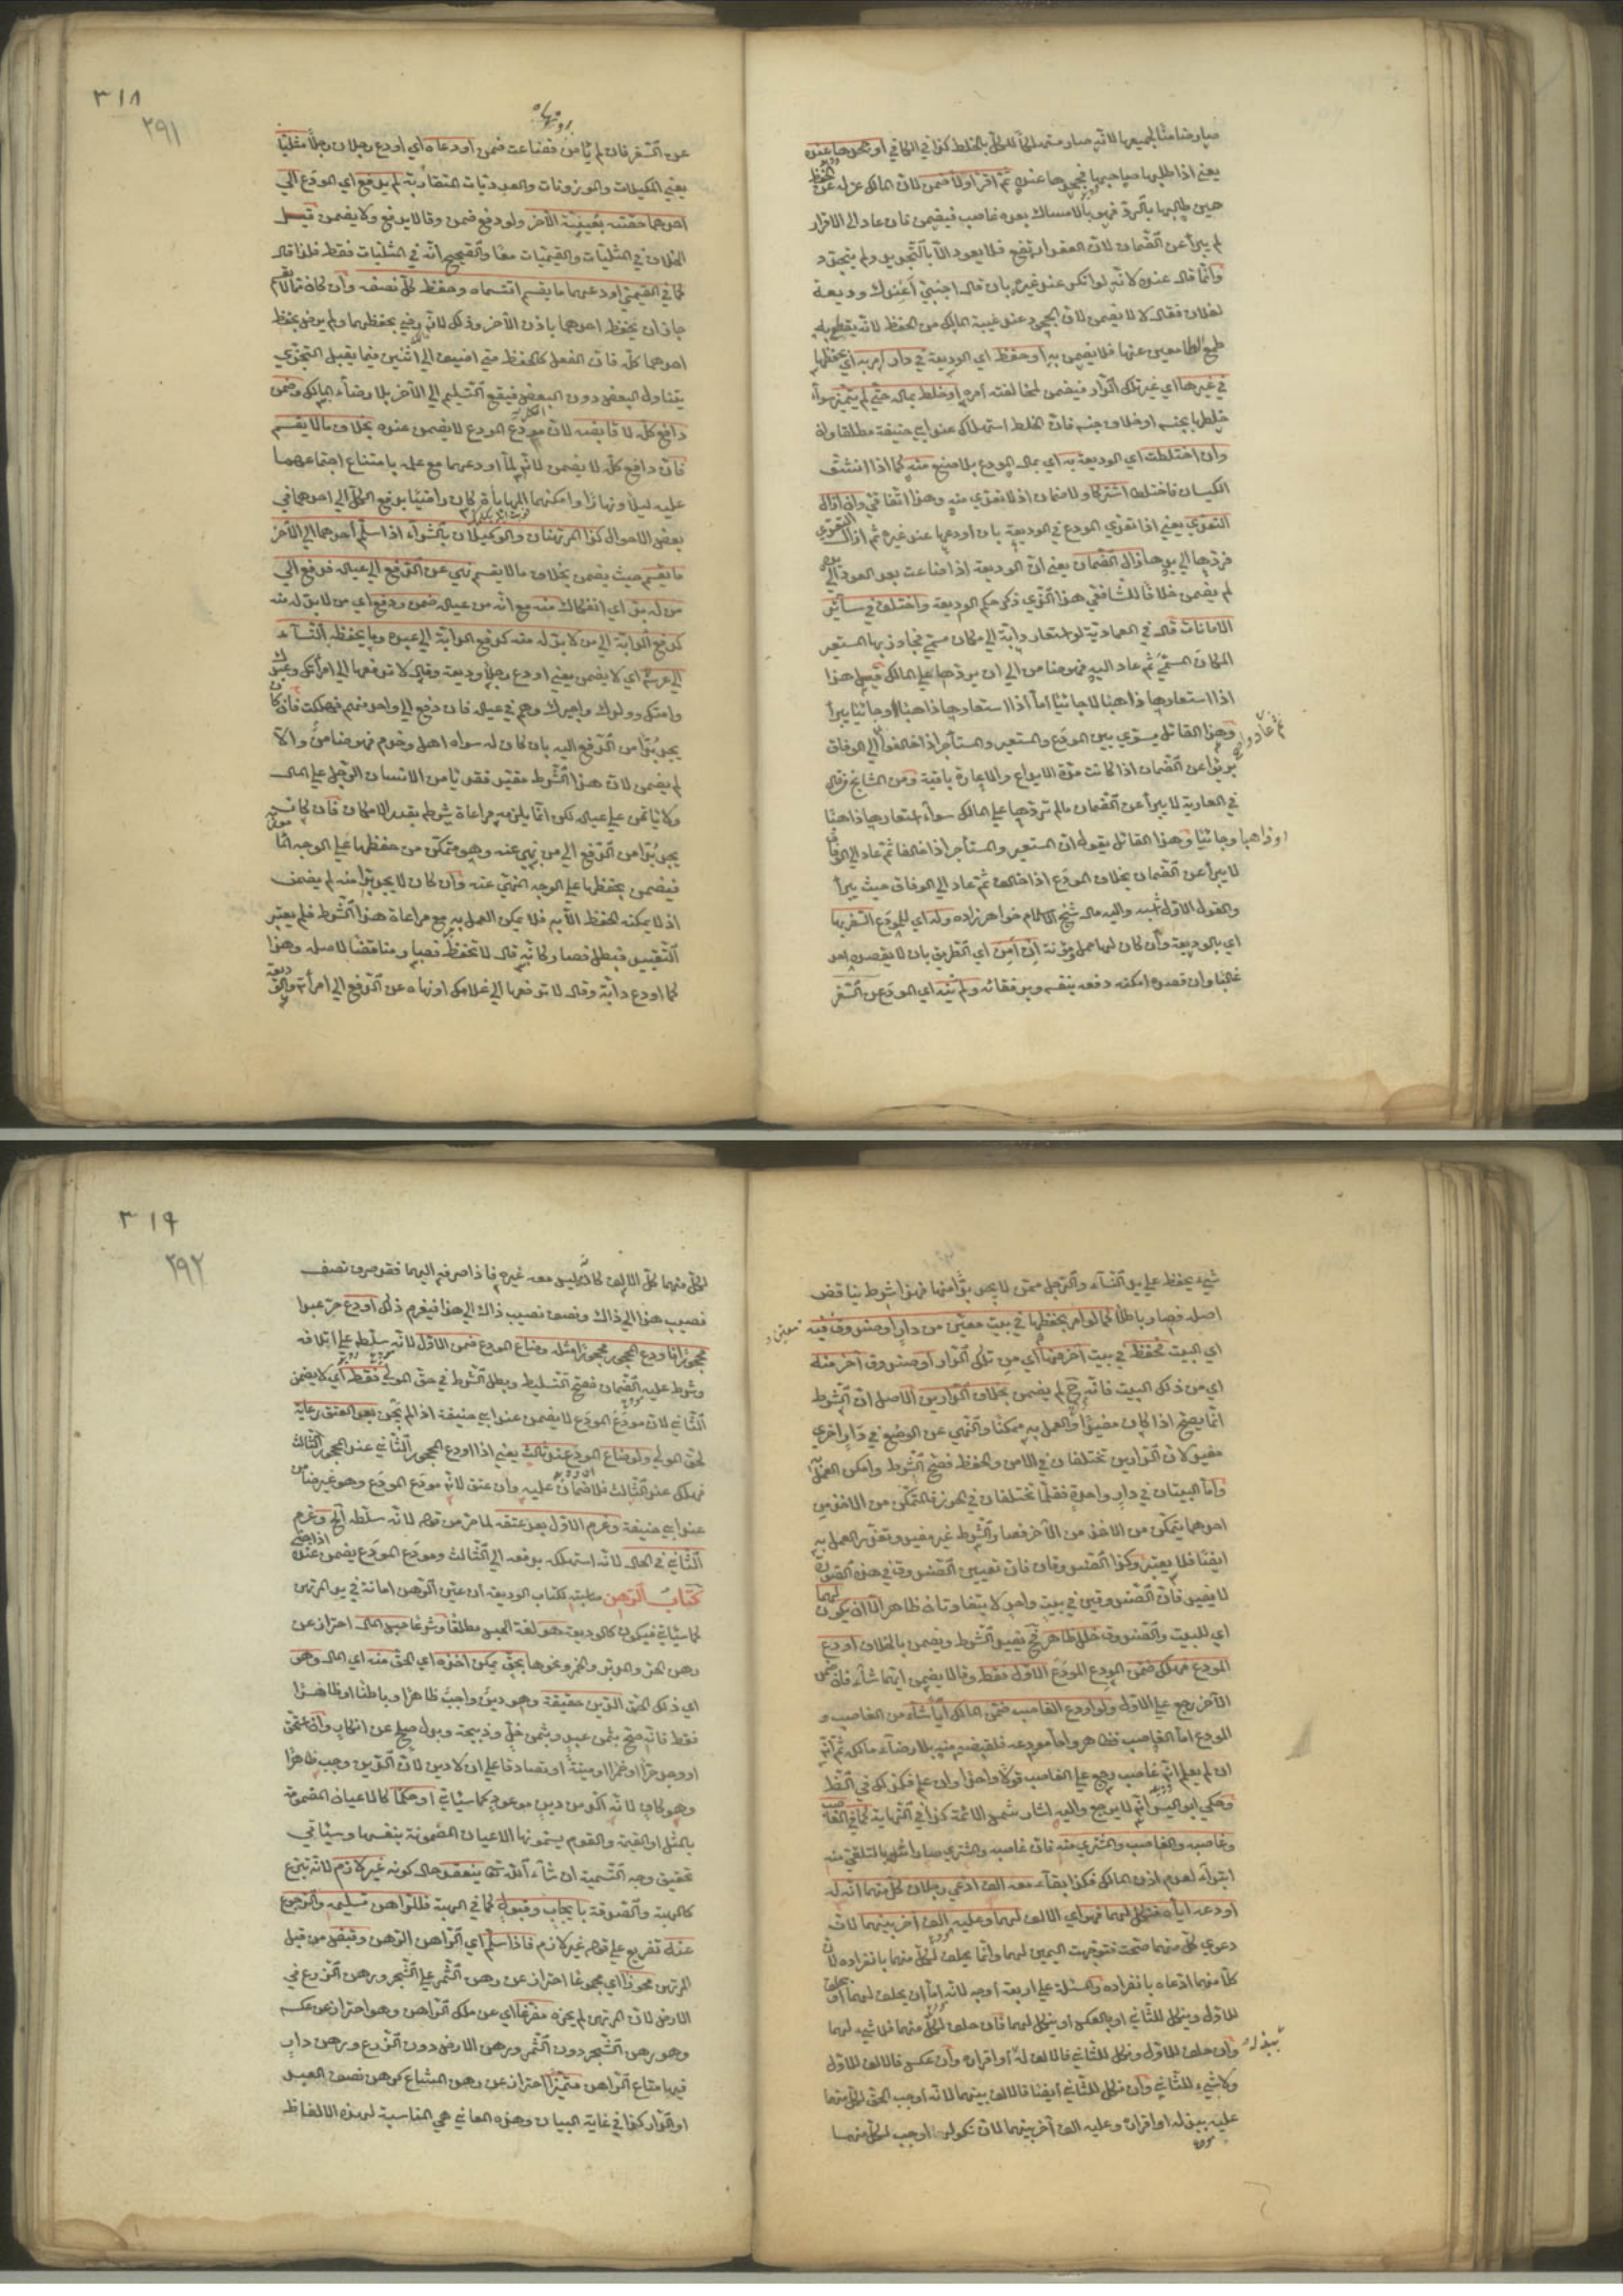 صار ضامنا لجميعها لانه صار مستهلكا للكل بالخلط كذا في الكافي او جحدها عنده
يعني اذا طلبها صاحبها فجحدها عنده ثم اقر اولا ضمن لان المالك عزله عن الحفظ
حين طالبها بالرد فهو بالامساك بعده غاصب فيضمن فان عاد الى الاقرار
لم يبرأ عن الضمان لان العقد ارتفع فلا يعود الا بالتجديد ولم يتجدد
وانما قال عنده لانه لو انكر عند غيره بان قال اجنبي أعندك وديعة
لفلان فقال لا لا يضمن لان الجحود عند غيبة المالك من الحفظ لانه يقطع به
طمع الطامعين عنها فلا يضمن به او حفظ اي الوديعة في دار امر به اي بحفظها
في غيرها اي غير تلك الدار فيضمن لمخالفته امره او خلط بماله حتى لم يتميز سواء
خلطها بجنسه او خلاف جنسه فان الخلط استهلاك عند ابي حنيفة مطلقا
وان اختلطت اي الوديعة به اي بمال المودع بلا صنع منه كما اذا انشق
الكيسان فاختلطا اشتركا ولا ضمان اذ لا تعدي منه وهذا اتفاقي وان ازال
التعدي يعني اذا تعدى المودع في الوديعة بان اودعها عند غيره ثم ازال التعدي
فردها الى يده زال الضمان يعني ان الوديعة اذا ضاعت بعد العود الى يده
لم يضمن خلافا للشافعي هذا الذي ذكر حكم الوديعة واختلف في سائر
الامانات قال في العمادية لو استعار دابة الى مكان مسمى فجاوز بها المستعير
المكان المسمى ثم عاد اليه فهو ضامن الى ان يردها على المالك قيل هذا
اذا استعارها ذاهبا لا جائيا اما اذا استعارها ذاهبا وجائيا يبرأ
وهذا القائل يسوي بين المودع والمستعير والمستأجر اذا خالفوا ثم عادوا الى الوفاق
برئوا عن الضمان اذا كانت مدة الايداع والاعارة باقية ومن المشايخ من قال
في العارية لا يبرأ عن الضمان مالم يردها على المالك سواء استعارها ذاهبا
او ذاهبا وجائيا وهذا القائل يقول ان المستعير والمستأجر اذا خالفا ثم عادا الى الوفاق
لا يبرأ عن الضمان بخلاف المودع اذا خالف ثم عاد الى الوفاق حيث يبرأ
والقول الاول اشبه واليه مال شيخ الاسلام خواهر زاده وله اي للمودع السفر بها
اي بالوديعة وان كان لها حمل ومؤنة ان امن اي الطريق بان لا يقصده احد
غالبا وان قصده امكنه دفعه بنفسه وبرفقائه ولم ينه اي المودع عن السفر
٣١٨
٢٩١
عن السفر فان لم يأمن فضاعت ضمن اودعاه اي اودع رجلان رجلا مثليا
يعني المكيلات والموزونات والعدديات المتقاربة لم يدفع اي المودع الى
احدهما حصته بغيبة الآخر ولو دفع ضمن وقالا يدفع ولا يضمن قيل
الخلاف في المثليات والقيميات معا والصحيح انه في المثليات فقط فلذا قال
كما في القيمي اودعهما ما يقسم اقتسماه وحفظ كل نصفه وان كان مما لا يقسم
جاز ان يحفظ احدهما باذن الآخر وذلك لانه رضي بحفظهما ولم يرض بحفظ
احدهما كله فان الفعل كالحفظ متى اضيف الى اثنين فيما يقبل التجزي
يتناول البعض دون البعض فيقع التسليم الى الآخر بلا رضاء المالك وضمن
دافع كله لا قابضه لان مودع المودع لا يضمن عنده بخلاف ما لا يقسم
فان دافع كله لا يضمن لانه لما اودعهما مع علمه بامتناع اجتماعهما
عليه ليلا ونهارا وامكنهما المهايأة كان راضيا بدفع الكل الى احدهما في
بعض الاحوال كذا المرتهنان والوكيلان بالشراء اذا سلم احدهما الى الآخر
ما يقسم حيث يضمن بخلاف ما لا يقسم نهى عن الدفع الى عياله فدفع الى
من له بد اي انفكاك منه مع انه من عياله ضمن ودفع اي من لا بد له منه
كدفع الدابة الى من لا بد له منه كدفع الدابة الى عبده وما يحفظه النساء
الى عرسه اي لا يضمن يعني اودع رجلا وديعة وقال لا تدفعها الى امرأتك وعبدك
وامتك وولدك واجيرك وهم في عياله فان دفع الى واحد منهم فهلكت فان كان
يجد بدا من الدفع اليه بان كان له سواه اهل وخدم فهو ضامن والا
لم يضمن لان هذا الشرط مقيد فقد يأمن الانسان الرجل على المال
ولا يأتمن على عياله لكن انما يلزمه مراعاة شرطه بقدر الامكان فان كان
يجد بدا من الدفع الى من نهي عنه وهو متمكن من حفظها على الوجه المأمور
فيضمن بحفظها على الوجه المنهي عنه وان كان لا يجد بدا منه لم يضمن
اذ لا يمكنه الحفظ الا به فلا يمكن العمل به مع مراعاة هذا الشرط فلم يعتبر
التقييد فبطل فصار كأنه قال لا تحفظ فصار مناقضا لاصله وهذا
كما اودع دابة وقال لا تدفعها الى غلامك او نهاه عن الدفع الى امرأته والوديعة
شيء يحفظ على يد النساء والرجل ممن لا يجد بدا منها فهذا شرط يناقض
اصله فصار باطلا كما لو امر بحفظها في بيت معين من دار او صندوق معين فيه
اي البيت تحفظ في بيت آخر منها اي من تلك الدار او صندوق آخر منه
اي من ذلك البيت فانه ح لم يضمن بخلاف الدارين الاصل ان الشرط
انما يصح اذا كان مفيدا والعمل به ممكنا والنهي عن الوضع في دار اخرى
مفيد لان الدارين تختلفان في الامن والحفظ فصح الشرط وامكن العمل به
واما البيتان في دار واحدة فقلما تختلفان في الحرز فالتمكن من الاخذ من
احدهما يتمكن من الاخذ من الآخر فصار الشرط غير مفيد وتعذر العمل به
ايضا فلا يعتبر وكذا الصندوقان فان تعيين الصندوق في هذه الصورة
لا يفيد فان الصندوقين في بيت واحد لا يتفاوتان ظاهرا الا ان يكون لهما
اي للبيت والصندوق خلل ظاهر فح يفيد الشرط ويضمن بالخلاف اودع
المودع فهلك ضمن المودع الاول فقط وقالا يضمن ايهما شاء فان ضمن
الآخر رجع على الاول ولو اودع الغاصب ضمن المالك ايا شاء من الغاصب و
المودع اما الغاصب فظاهر واما مودعه فلقبضه منه بلا رضاء مالكه ثم انه
ان لم يعلم انه غاصب رجع على الغاصب قولا واحدا وان علم فكذلك في الظاهر
وحكي ابو اليسر انه لا يرجع واليه اشار شمس الائمة كذا في النهاية كما في الغاصب
وغاصبه والغاصب والمشتري منه فان غاصبه والمشتري صارا مثله بالتلقي منه
ابتداء لعدم اذن المالك فكذا بقاء معه الف ادعى رجلان كل منهما انه له
اودعه اياه فنكل لهما فهو اي الالف لهما وعليه الف آخر بينهما لان
دعوى كل منهما صحت فتوجهت اليمين لهما وانما يحلف لكل منهما بانفراده لان
كلا منهما ادعاه بانفراده والمسئلة على اربعة اوجه لانه اما ان يحلف لهما او يحلف
للاول وينكل للثاني او بالعكس او ينكل لهما فان حلف لكل منهما فلا شيء لهما
وان حلف للاول ونكل للثاني فالالف له او اقرار وان عكس فالالف للاول
ولا شيء للثاني وان نكل للثاني ايضا فالالف بينهما لانه اوجب الحق لكل منهما
عليه ببذله او اقراره وعليه الف آخر بينهما لان نكوله اوجب لكل منهما
٣١٩
٢٩٢
لكل منهما كل الالف كان ليس معه غيره فاذا صرفه اليهما فقد صرف نصف
نصيب هذا الى ذاك ونصف نصيب ذاك الى هذا فيغرم ذلك اودع حر عبدا
محجورا فاودع المحجور محجورا مثله وضاع المودع ضمن الاول لانه سلطه على اتلافه
وشرط عليه الضمان فصح التسليط وبطل الشرط في حق المولى فقط اي لا يضمن
الثاني لان مودع المودع لا يضمن عند ابي حنيفة اذا لم يجن بعد العتق رعاية
لحق المولى ولو ضاع المودع عند ثالث يعني اذا اودع المحجور الثاني عند المحجور الثالث
فهلك عند الثالث فلا ضمان عليه وان عتق لانه مودع المودع وهو غير ضامن
عند ابي حنيفة وغرم الاول بعد عتقه لما مر من قوله لانه سلطه الخ وغرم
الثاني في الحال لانه استهلكه بدفعه الى الثالث ومودع المودع يضمن عنده اذا ضيع
كتاب الرهن مناسبته لكتاب الوديعة ان عين الرهن امانة في يد المرتهن
كما سيأتي فيكون كالوديعة هو لغة الحبس مطلقا وشرعا حبس المال احتراز عن
رهن الحر والمدبر والخمر ونحوها بحق يمكن اخذه اي الحق منه اي المال وهو
اي ذلك الحق الدين حقيقة وهو دين واجب ظاهرا وباطنا او ظاهرا
فقط فانه صح بثمن عبد وبثمن خل وذبيحة وبدل صلح عن انكار وان عتق
او وجد حرا او خمرا او ميتة او تصادقا على ان لا دين لان الدين وجب ظاهرا
وهو كاف لانه آكد من دين موعود كما سيأتي او حكما كالاعيان المضمونة
بالمثل او القيمة والقوم يسمونها الاعيان المضمونة بنفسها وسيأتي
تحقيق وجه التسمية ان شاء الله تعالى ينعقد حال كونه غير لازم لانه تبرع
كالهبة والصدقة بايجاب وقبول كما في الهبة فللراهن تسليمه والرجوع
عنه تفريع على قوله غير لازم فاذا سلم اي الراهن الرهن وقبض من قبل
المرتهن محوزا اي مجموعا احتراز عن رهن الثمر على الشجر ورهن الزرع في
الارض لان المرتهن لم يحزه مفرغا اي عن ملك الراهن وهو احتراز عن عكسه
وهو رهن الشجر دون الثمر ورهن الارض دون الزرع ورهن دار
فيها متاع الراهن متميزا احتراز عن رهن المشاع كرهن نصف العبد
او الدار كذا في غاية البيان وهذه المعاني هي المناسبة لهذه الالفاظ